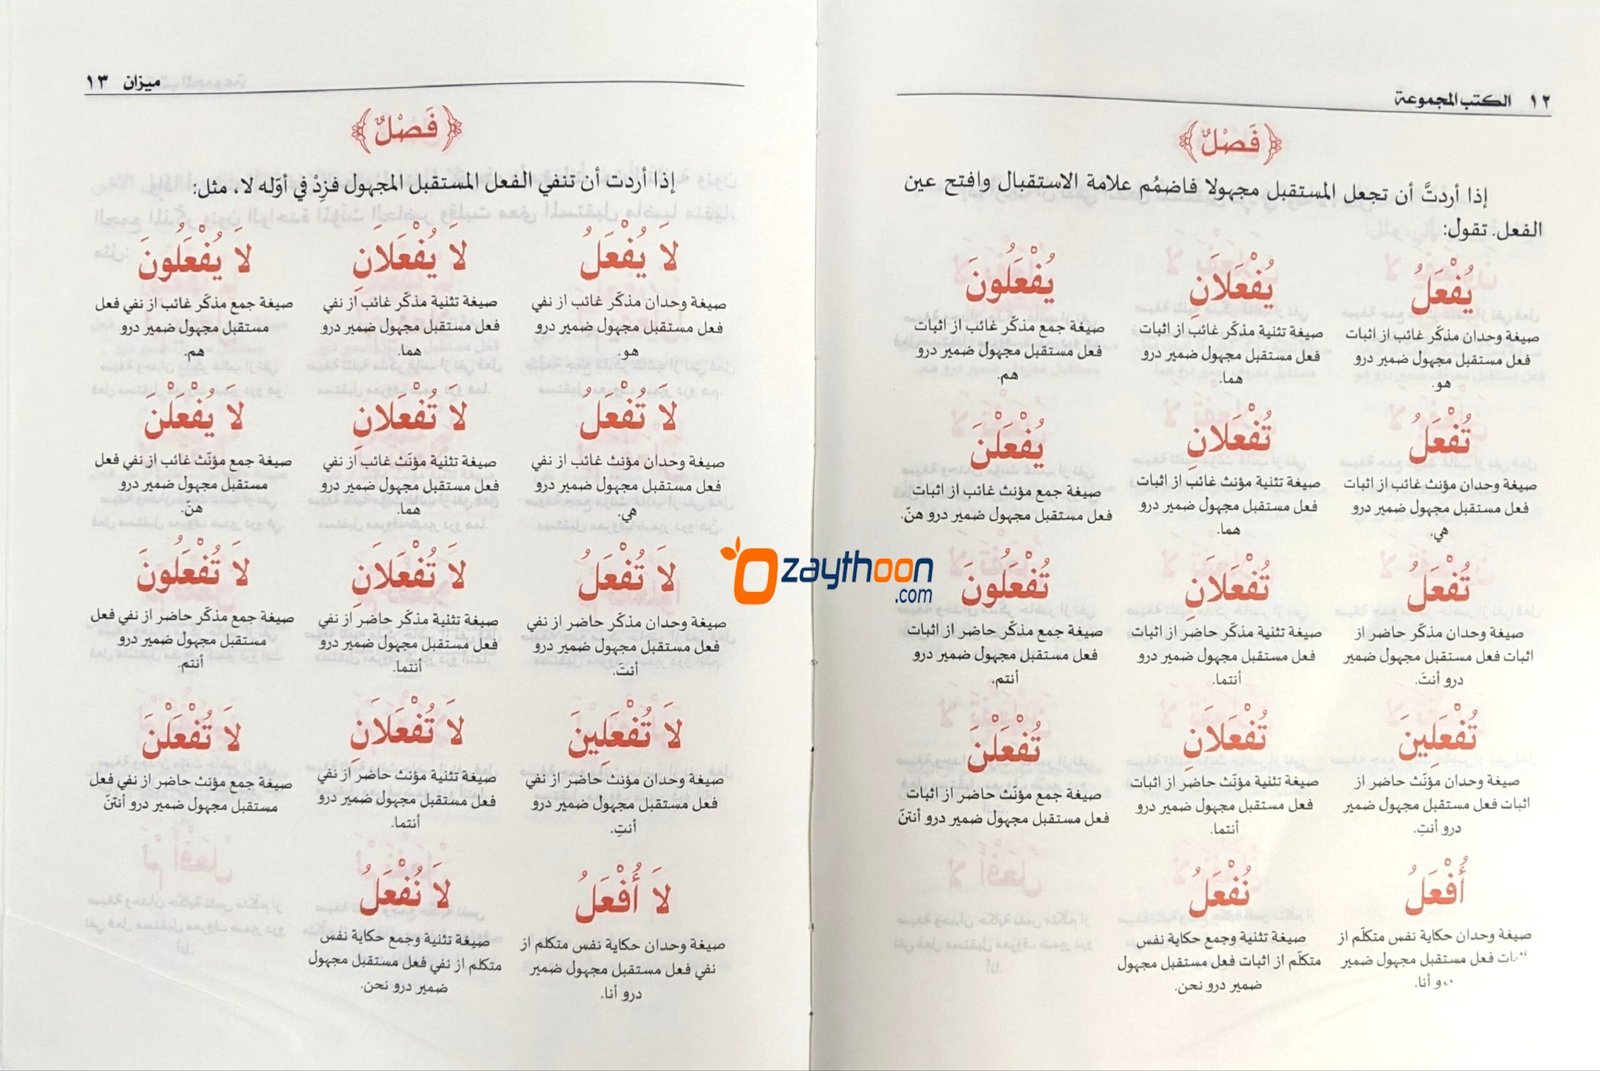 ١٢ الكتب المجموعة
فَصْلٌ
إذا أردتَّ أن تجعل المستقبل مجهولا فاضمُم علامة الاستقبال وافتح عين
الفعل. تقول:
يُفْعَلُ
صيغة وحدان مذكّر غائب از اثبات
فعل مستقبل مجهول ضمير درو
هو.
يُفْعَلاَنِ
صيغة تثنية مذكّر غائب از اثبات
فعل مستقبل مجهول ضمير درو
هما.
يُفْعَلُونَ
صيغة جمع مذكّر غائب از اثبات
فعل مستقبل مجهول ضمير درو
هم.
تُفْعَلُ
صيغة وحدان مؤنث غائب از اثبات
فعل مستقبل مجهول ضمير درو
هي.
تُفْعَلاَنِ
صيغة تثنية مؤنث غائب از اثبات
فعل مستقبل مجهول ضمير درو
هما.
يُفْعَلْنَ
صيغة جمع مؤنث غائب از اثبات
فعل مستقبل مجهول ضمير درو هنّ.
تُفْعَلُ
صيغة وحدان مذكّر حاضر از
اثبات فعل مستقبل مجهول ضمير
درو أنتَ.
تُفْعَلاَنِ
صيغة تثنية مذكّر حاضر از اثبات
فعل مستقبل مجهول ضمير درو
أنتما.
تُفْعَلُونَ
صيغة جمع مذكّر حاضر از اثبات
فعل مستقبل مجهول ضمير درو
أنتم.
تُفْعَلِينَ
صيغة وحدان مؤنّث حاضر از
اثبات فعل مستقبل مجهول ضمير
درو أنتِ.
تُفْعَلاَنِ
صيغة تثنية مؤنّث حاضر از اثبات
فعل مستقبل مجهول ضمير درو
أنتما.
تُفْعَلْنَ
صيغة جمع مؤنّث حاضر از اثبات
فعل مستقبل مجهول ضمير درو أنتنّ
أُفْعَلُ
صيغة وحدان حكاية نفس متكلّم از
فعل مستقبل مجهول ضمير
أنا.
نُفْعَلُ
صيغة تثنية وجمع حكاية نفس
متكلّم از اثبات فعل مستقبل مجهول
ضمير درو نحن.
ميزان ١٣
فَصْلٌ
إذا أردت أن تنفي الفعل المستقبل المجهول فزِدْ في أوّله لا، مثل:
لاَ يُفْعَلُ
صيغة وحدان مذكّر غائب از نفي
فعل مستقبل مجهول ضمير درو
هو.
لاَ يُفْعَلاَنِ
صيغة تثنية مذكّر غائب از نفي
فعل مستقبل مجهول ضمير درو
هما.
لاَ يُفْعَلُونَ
صيغة جمع مذكّر غائب از نفي فعل
مستقبل مجهول ضمير درو
هم.
لاَ تُفْعَلُ
صيغة وحدان مؤنث غائب از نفي
فعل مستقبل مجهول ضمير درو
هي.
لاَ تُفْعَلاَنِ
صيغة تثنية مؤنّث غائب از نفي
فعل مستقبل مجهول ضمير درو
هما.
لاَ يُفْعَلْنَ
صيغة جمع مؤنّث غائب از نفي فعل
مستقبل مجهول ضمير درو
هنّ.
لاَ تُفْعَلُ
صيغة وحدان مذكّر حاضر از نفي
فعل مستقبل مجهول ضمير درو
أنتَ.
لاَ تُفْعَلاَنِ
صيغة تثنية مذكّر حاضر از نفي
فعل مستقبل مجهول ضمير درو
أنتما.
لاَ تُفْعَلُونَ
صيغة جمع مذكّر حاضر از نفي فعل
مستقبل مجهول ضمير درو
أنتم.
لاَ تُفْعَلِينَ
صيغة وحدان مؤنث حاضر از نفي
فعل مستقبل مجهول ضمير درو
أنتِ.
لاَ تُفْعَلاَنِ
صيغة تثنية مؤنث حاضر از نفي
فعل مستقبل مجهول ضمير درو
أنتما.
لاَ تُفْعَلْنَ
صيغة جمع مؤنث حاضر از نفي فعل
مستقبل مجهول ضمير درو أنتنّ
لاَ أُفْعَلُ
صيغة وحدان حكاية نفس متكلم از
نفي فعل مستقبل مجهول ضمير
درو أنا.
لاَ نُفْعَلُ
صيغة تثنية وجمع حكاية نفس
متكلم از نفي فعل مستقبل مجهول
ضمير درو نحن.
zaythoon
.com